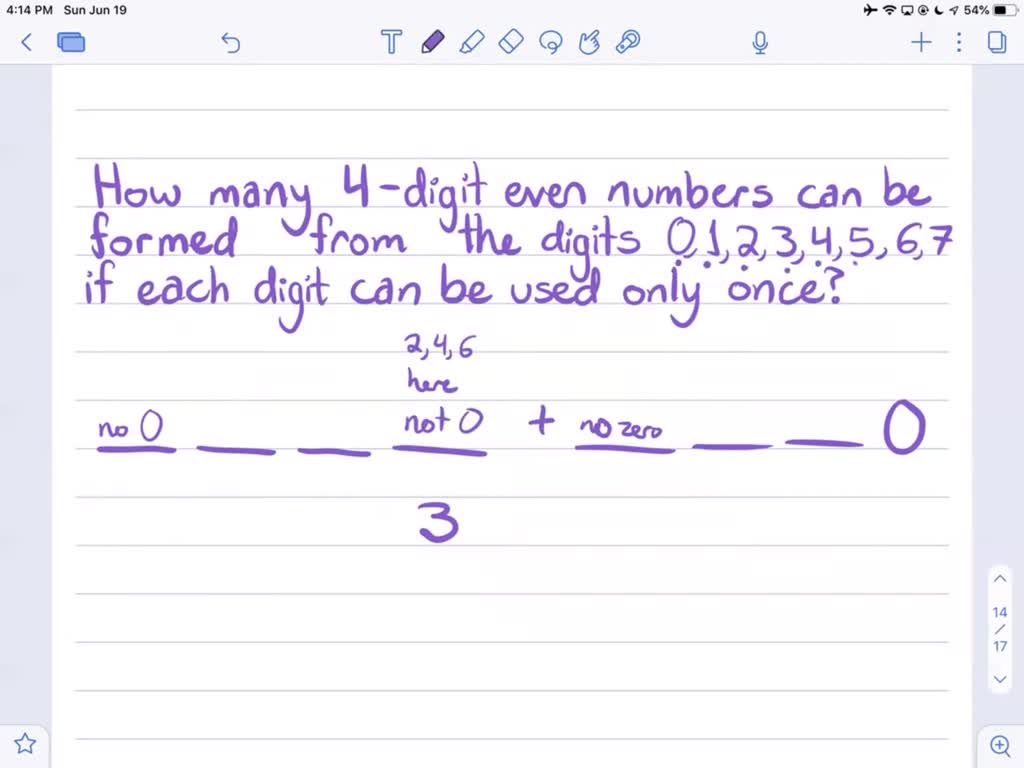 4:14 PM Sun Jun 19
54%
T
How many 4-digit even numbers can be
formed from the digits 0,1,2,3,4,5,6,7
if each digit can be used only once?
2,4,6
here
no 0 not 0 + no zero 0
3
14
/
17